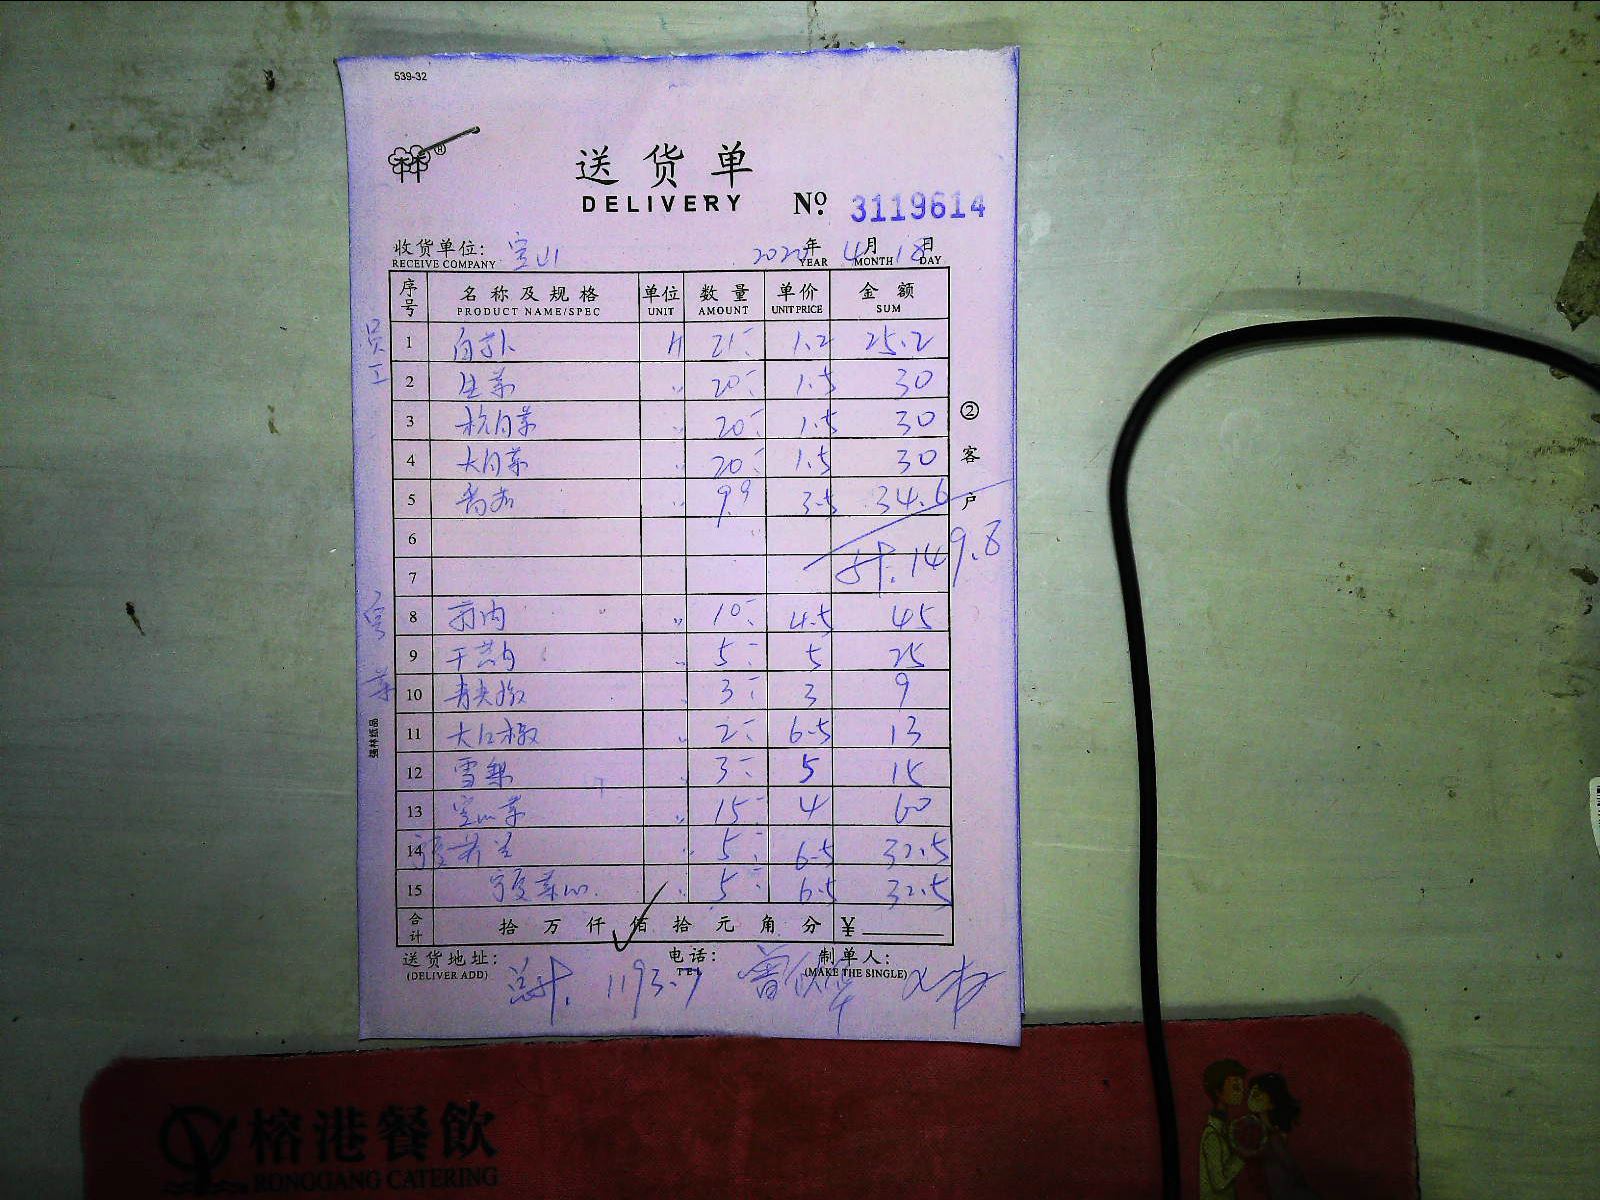 539-32
送货单
DELIVERY No. 3119614
收货单位: 宝山 2020年 4月 18日
RECEIVE COMPANY YEAR MONTH DAY
序号 名称及规格 单位 数量 单价 金额
PRODUCT NAME/SPEC UNIT AMOUNT UNIT PRICE SUM
员工
1 21 1.2 25.2
2 生菜 〃 20 1.5 30
3 〃 20 1.5 30
4 大白菜 〃 20 1.5 30
5 〃 9.9 3.5 34.6
6 计.149.8
7
8 〃 10 4.5 45
9 〃 5 5 25
10 青尖椒 〃 3 3 9
11 大红椒 〃 2 6.5 13
12 雪梨 〃 3 5 15
13 空心菜 〃 15 4 60
14 〃 5 6.5 32.5
15 宁夏菜心 〃 5 6.5 32.5
②客户
强林纸品
合计 拾 万 仟 佰 拾 元 角 分 ¥
送货地址: 电话: 制单人:
(DELIVER ADD) TEL (MAKE THE SINGLE)
总计. 1193.7
榕港餐飲
RONGGANG CATERING